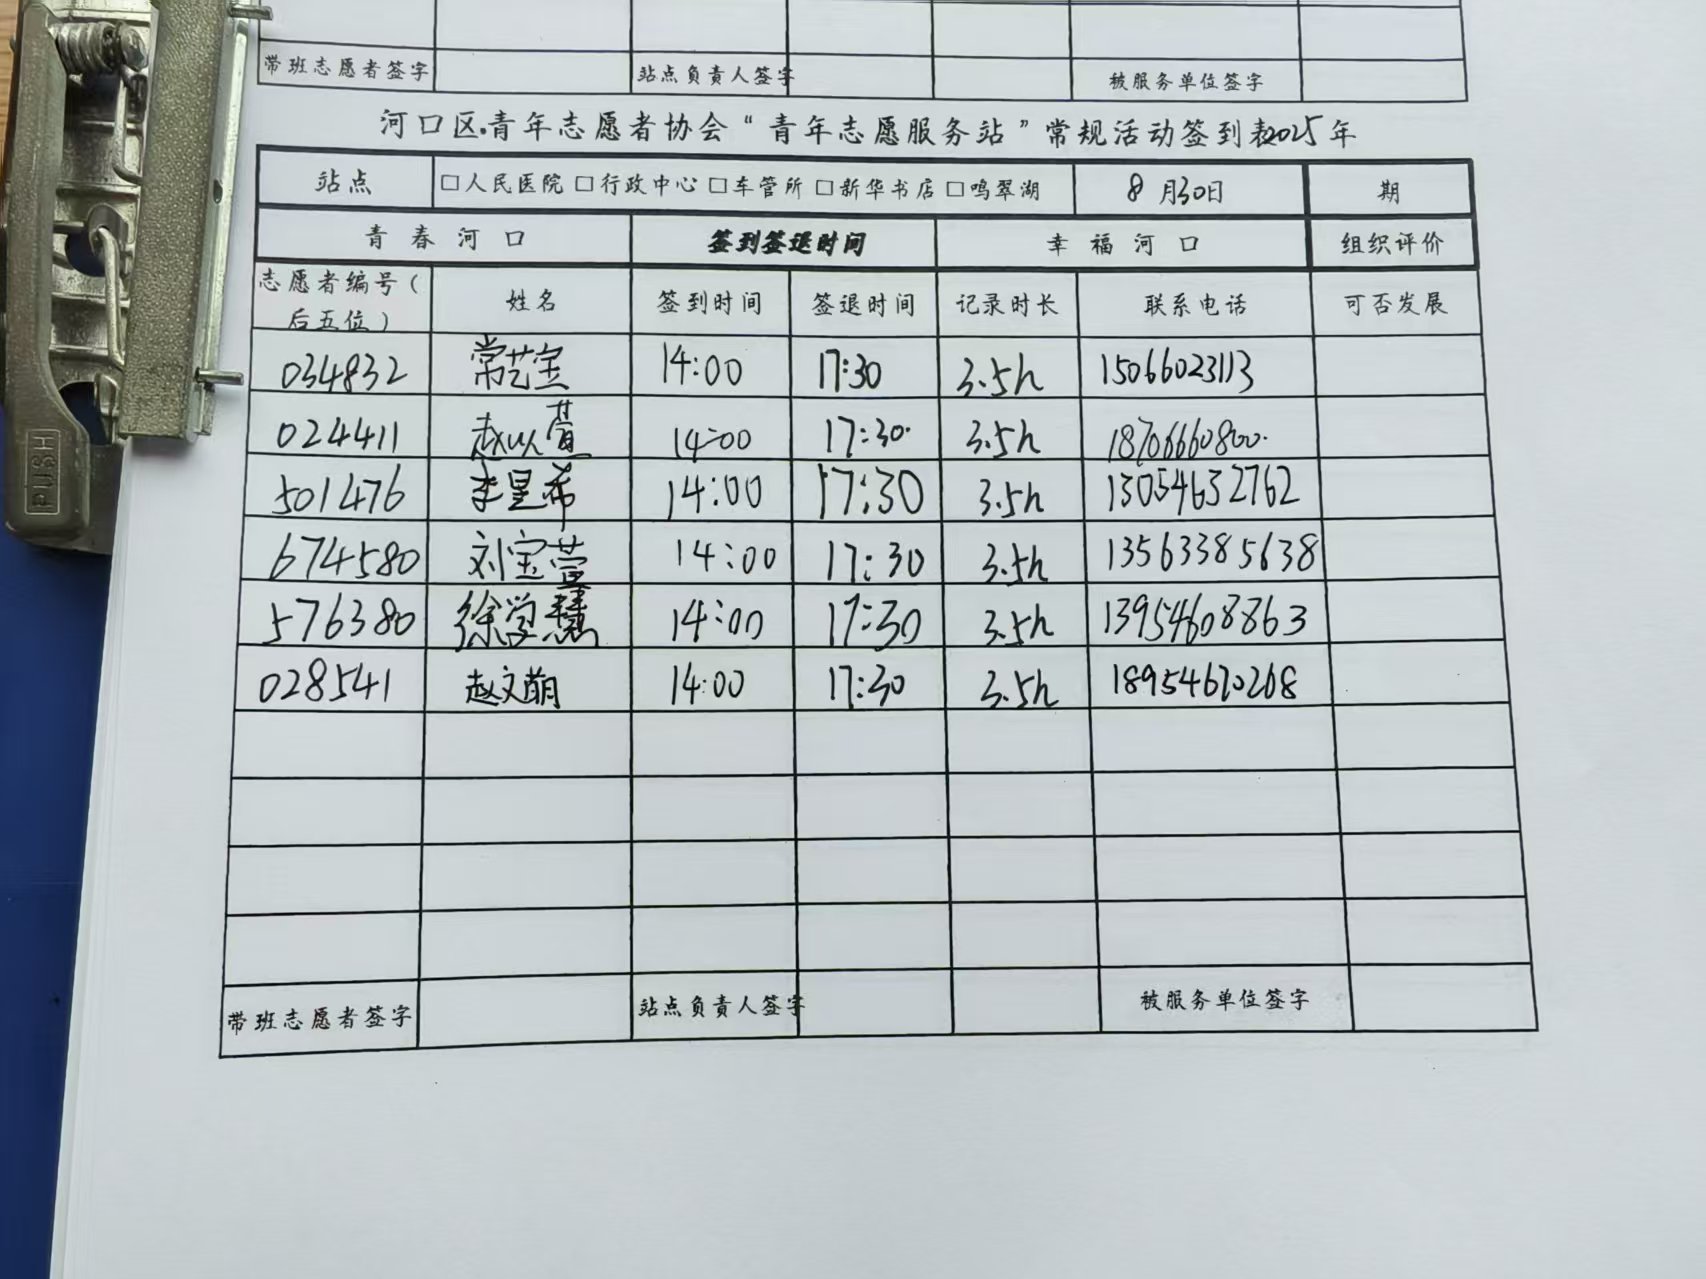 带班志愿者签字 站点负责人签字 被服务单位签字
河口区.青年志愿者协会“青年志愿服务站”常规活动签到表2025年
站点 □人民医院□行政中心□车管所□新华书店□鸣翠湖 8月30日 期
青春河口 签到签退时间 幸福河口 组织评价
志愿者编号(
后五位) 姓名 签到时间 签退时间 记录时长 联系电话 可否发展
034832 常艺宝 14:00 17:30 3.5h 15066023113
024411 赵以萱 14:00 17:30. 3.5h 18706660800.
501476 李昱希 14:00 17:30 3.5h 13054632762
674580 刘宝萱 14:00 17:30 3.5h 13563385638
576380 徐学慧 14:00 17:30 3.5h 13954608863
028541 赵文萌 14:00 17:30 3.5h 18954670268
带班志愿者签字 站点负责人签字 被服务单位签字
PUSH